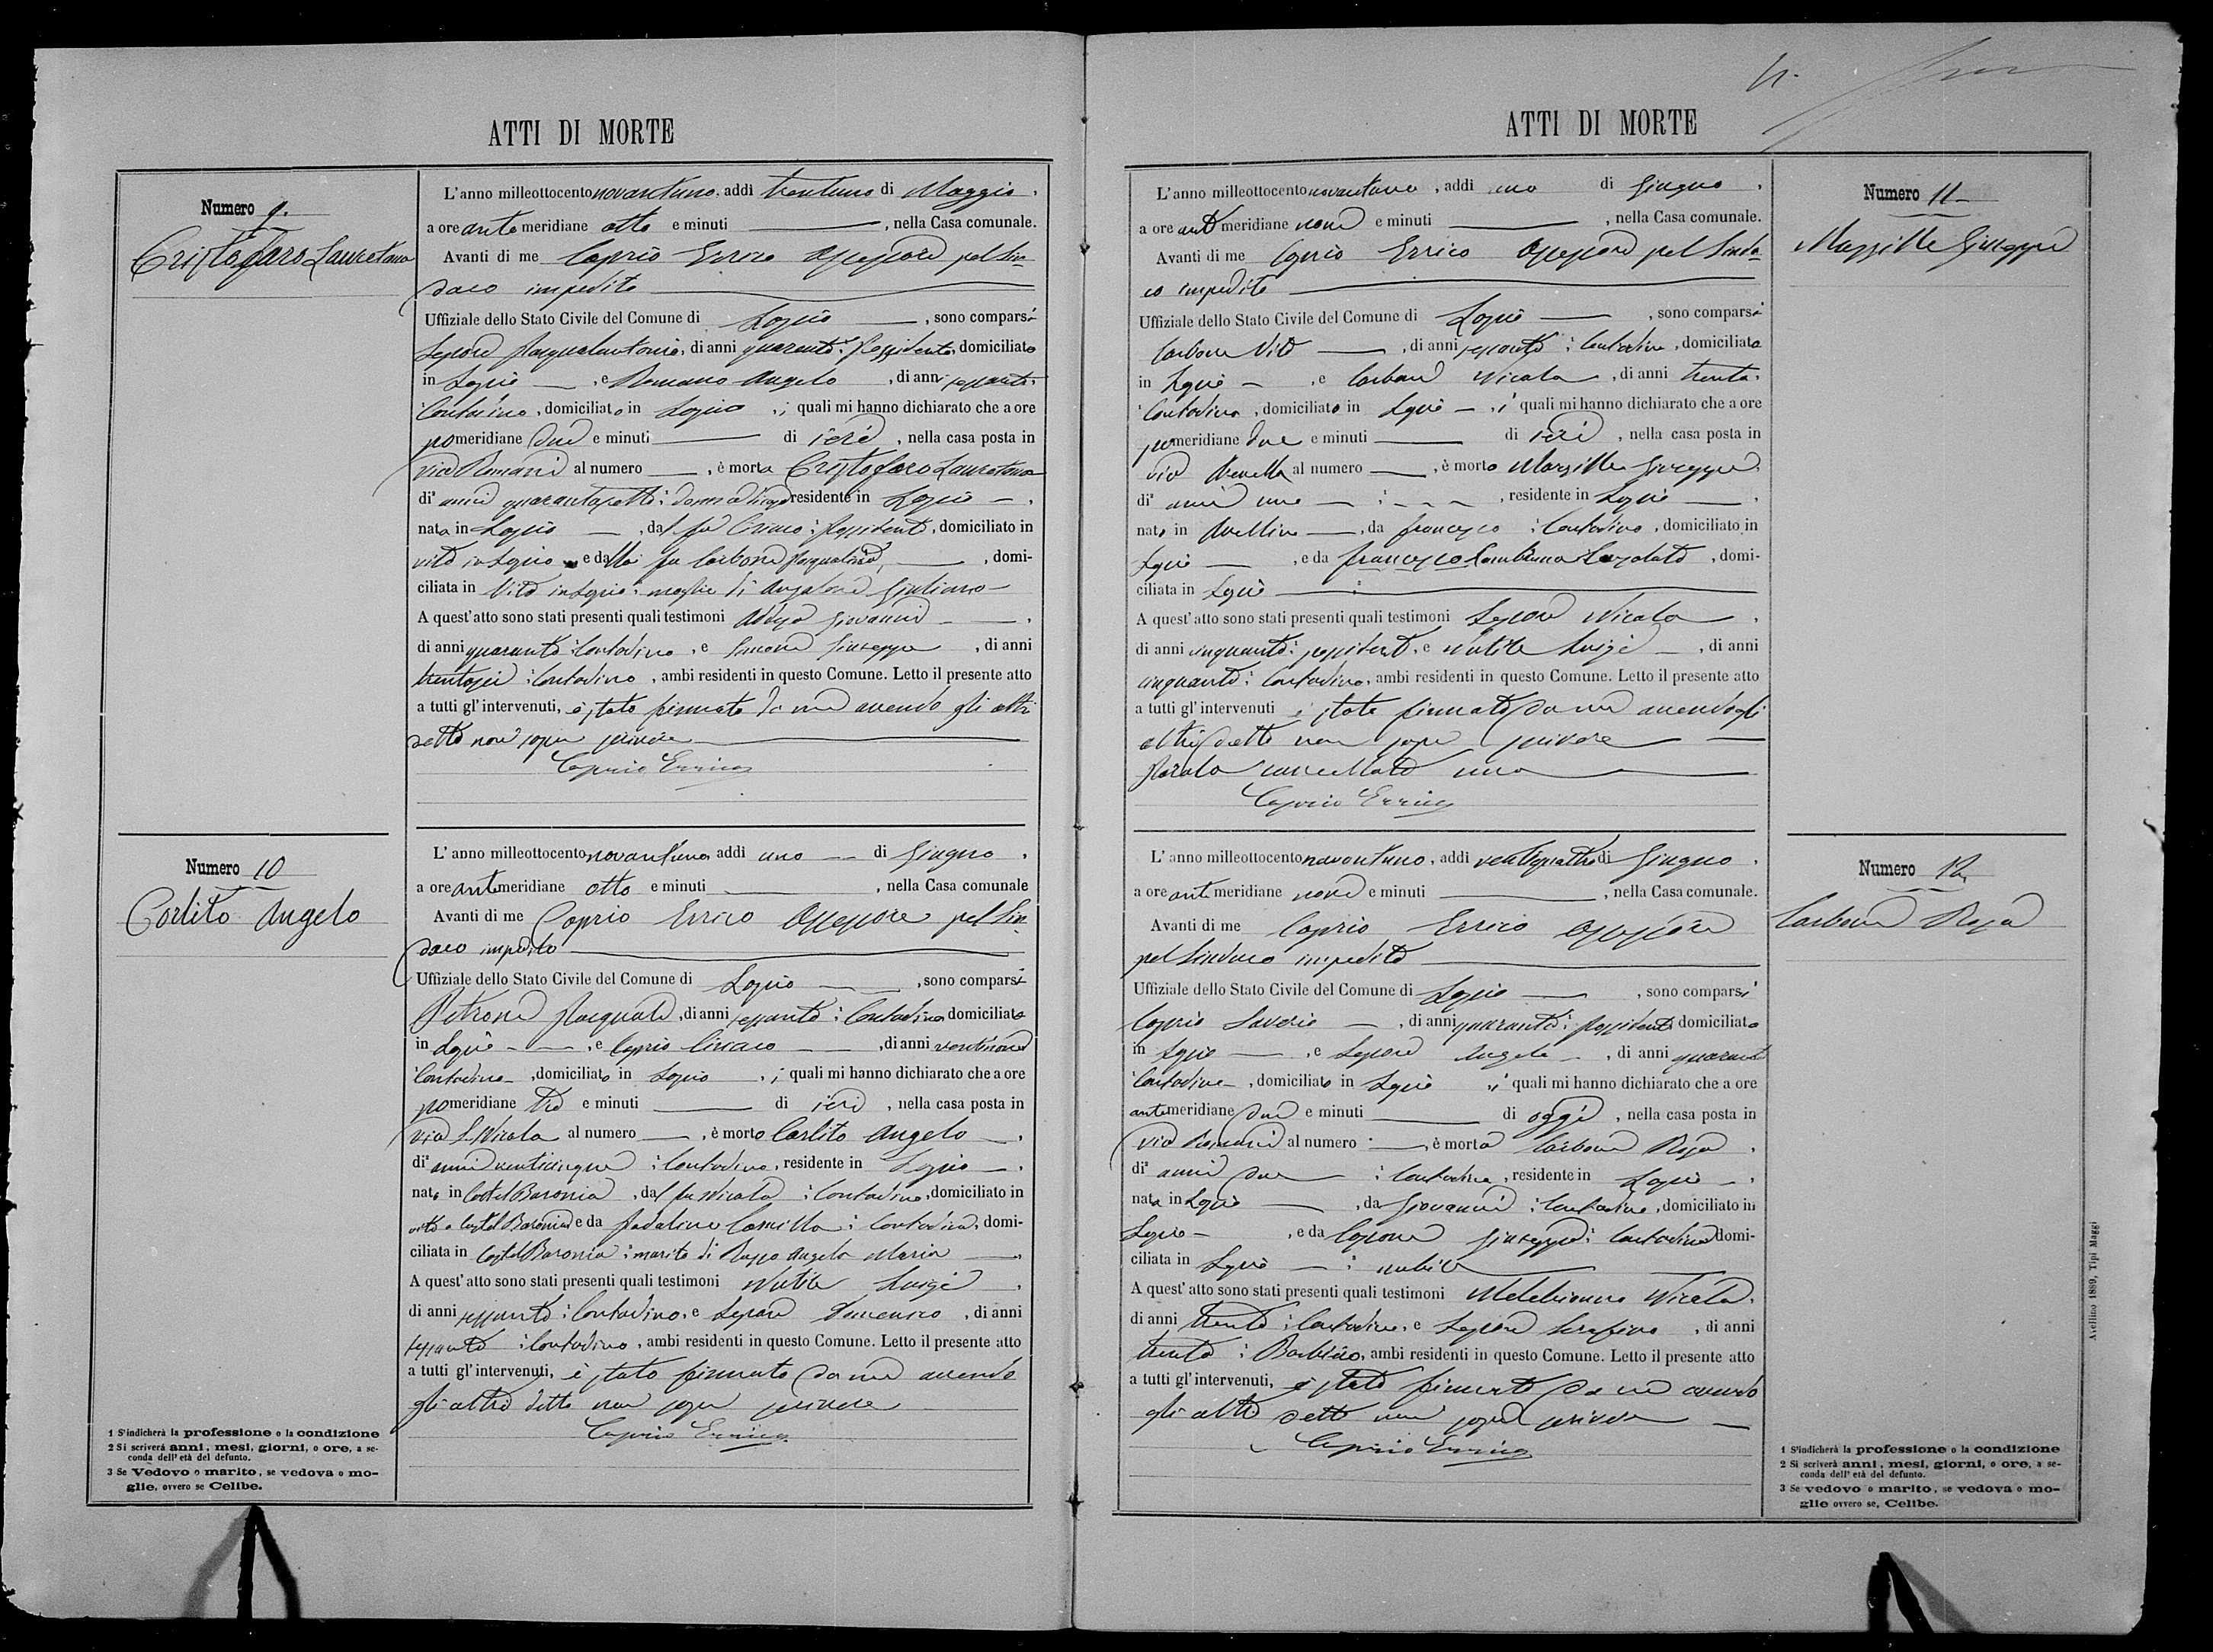 ATTI DI MORTE
Numero 9.
Cristofaro Lauretana
L'anno milleottocento novantuno, addì trentuno di Maggio,
a ore antemeridiane otto e minuti, nella Casa comunale.
Avanti di me Caprio Errico Assessore pel Sin-
daco impedito
Uffiziale dello Stato Civile del Comune di, sono comparsi
Lepore Pasqualantonio, di anni quaranta: Possidente, domiciliato
in, e Romano Angelo, di anni sessanta,
Contadino, domiciliato in, i quali mi hanno dichiarato che a ore
pomeridiane due e minuti di ieri, nella casa posta in
via Romani al numero, è morta Cristofaro Lauretana
di anni quarantasette: residente in
nata in, dal fu Ciriaco: Possidente, domiciliato in
vita in e dalla fu Carbone, domi-
ciliata in vita in: moglie di Giuliano
A quest'atto sono stati presenti quali testimoni Giovanni,
di anni quaranta: Contadino, e Simone Giuseppe, di anni
trentasei: Contadino, ambi residenti in questo Comune. Letto il presente atto
a tutti gl'intervenuti, è stato firmato da me avendo gli altri
detto non saper scrivere
Caprio Errico
Numero 10
Corlito Angelo
L'anno milleottocento novantuno, addì uno di Giugno,
a ore antemeridiane otto e minuti, nella Casa comunale
Avanti di me Caprio Errico Assessore pel Sin-
daco impedito
Uffiziale dello Stato Civile del Comune di, sono comparsi
Petrone Pasquale, di anni sessanta: Contadino domiciliato
in, e Caprio Ciriaco, di anni ventinove
Contadino, domiciliato in, i quali mi hanno dichiarato che a ore
pomeridiane tre e minuti di ieri, nella casa posta in
via S. Nicola al numero, è morto Corlito Angelo,
di anni venticinque: Contadino, residente in
nato in Castel Baronia, dal fu Nicola: Contadino, domiciliato in
vita a Castel Baronia e da Camilla: Contadina, domi-
ciliata in Castel Baronia: marito di Angela Maria
A quest'atto sono stati presenti quali testimoni Luigi,
di anni sessanta: Contadino, e Lepore, di anni
sessanta: Contadino, ambi residenti in questo Comune. Letto il presente atto
a tutti gl'intervenuti, è stato firmato da me avendo
gli altri detto non saper scrivere
Caprio Errico
1 S'indicherà la professione o la condizione
2 Si scriverà anni, mesi, giorni, o ore, a se-
conda dell'età del defunto.
3 Se Vedovo o marito, se vedova o mo-
glie, ovvero se Celibe.
ATTI DI MORTE
L'anno milleottocento novantuno, addì uno di Giugno,
a ore antemeridiane nove e minuti, nella Casa comunale.
Avanti di me Caprio Errico Assessore pel Sinda-
co impedito
Uffiziale dello Stato Civile del Comune di, sono comparsi
Carbone Vito, di anni sessanta: Contadino, domiciliato
in, e Carbone Nicola, di anni trenta,
Contadino, domiciliato in, i quali mi hanno dichiarato che a ore
pomeridiane due e minuti di ieri, nella casa posta in
via al numero, è morto Giuseppe,
di anni uno, residente in
nato in Avellino, da Francesco: Contadino, domiciliato in
, e da Francesco, domi-
ciliata in
A quest'atto sono stati presenti quali testimoni Lepore Nicola,
di anni cinquanta: possidente, e Luigi, di anni
cinquanta: Contadino, ambi residenti in questo Comune. Letto il presente atto
a tutti gl'intervenuti è stato firmato da me avendo gli
altri detto non saper scrivere
Parola cancellata una
Caprio Errico
Numero 11
Giuseppe
L'anno milleottocento novantuno, addì ventiquattro di Giugno,
a ore antemeridiane nove e minuti, nella Casa comunale.
Avanti di me Caprio Errico Assessore
pel Sindaco impedito
Uffiziale dello Stato Civile del Comune di, sono comparsi
Caprio Saverio, di anni quaranta: Possidente domiciliato
in, e Lepore Angelo, di anni quaranta
Contadino, domiciliato in, i quali mi hanno dichiarato che a ore
antemeridiane due e minuti di oggi, nella casa posta in
via Romani al numero, è morta Carbone Rosa,
di anni due: Contadina, residente in
nata in, da Giovanni: Contadino, domiciliato in
, e da Giuseppa: Contadina domi-
ciliata in: nubile
A quest'atto sono stati presenti quali testimoni Melchionna Nicola,
di anni trenta: Contadino, e Lepore Serafino, di anni
trenta: Barbiere, ambi residenti in questo Comune. Letto il presente atto
a tutti gl'intervenuti, è stato firmato da me avendo
gli altri detto non saper scrivere
Caprio Errico
Numero 12
Carbone Rosa
1 S'indicherà la professione o la condizione
2 Si scriverà anni, mesi, giorni, o ore, a se-
conda dell'età del defunto.
3 Se vedovo o marito, se vedova o mo-
glie ovvero se, Celibe.
Avellino 1889, Tipi Maggi